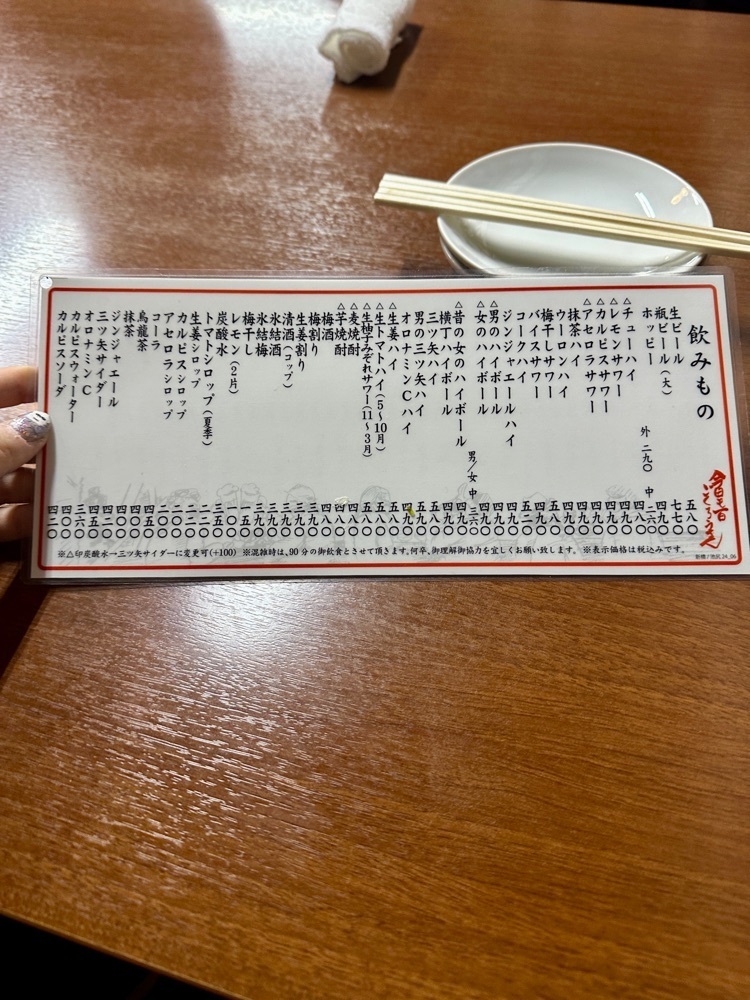 飲みもの
生ビール 五八〇
瓶ビール(大) 七七〇
ホッピー 外 二九〇 中 二六〇
△チューハイ 四八〇
△レモンサワー 四九〇
△カルピスサワー 四九〇
△アセロラサワー 四九〇
抹茶ハイ 四八〇
ウーロンハイ 四八〇
梅干しサワー
バイスサワー 五二〇
コークハイ 四九〇
ジンジャエールハイ 四九〇
△男のハイボール
△女のハイボール 四九〇
男/女 中 三六〇
△昔の女のハイボール 四九〇
横丁ハイボール 四九〇
三ツ矢ハイ 四九〇
男の三ツ矢ハイ 五九〇
オロナミンCハイ 四九〇
△生姜ハイ 五八〇
△生トマトハイ(5〜10月) 五八〇
△生柚子みぞれサワー(11〜3月) 五八〇
△麦焼酎 四八〇
△芋焼酎 四八〇
梅酒
梅割り 三九〇
生姜割り 三九〇
清酒(コップ) 三九〇
氷結酒 三九〇
氷結梅 三九〇
梅干し 一五〇
レモン(2片) 一〇〇
炭酸水 三五〇
トマトシロップ(夏季) 二二〇
生姜シロップ 二二〇
カルピスシロップ 二〇〇
アセロラシロップ 二〇〇
コーラ 四五〇
烏龍茶 四〇〇
抹茶 四〇〇
ジンジャエール 四二〇
三ツ矢サイダー 四五〇
オロナミンC 三六〇
カルピスウォーター 四〇〇
カルピスソーダ 四二〇
※△印炭酸水→三ツ矢サイダーに変更可(+100) ※混雑時は、90分の御飲食とさせて頂きます。何卒、御理解御協力を宜しくお願い致します。 ※表示価格は税込みです。